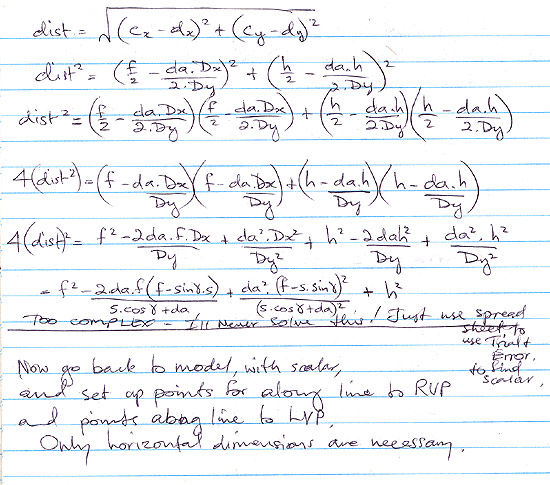 dist = √((cx - dx)² + (cy - dy)²)
dist² = (f/2 - da.Dx/2.Dy)² + (h/2 - da.h/2.Dy)²
dist² = (f/2 - da.Dx/2.Dy)(f/2 - da.Dx/2.Dy) + (h/2 - da.h/2.Dy)(h/2 - da.h/2.Dy)
4(dist²) = (f - da.Dx/Dy)(f - da.Dx/Dy) + (h - da.h/Dy)(h - da.h/Dy)
4(dist)² = f² - 2da.f.Dx/Dy + da².Dx²/Dy² + h² - 2dah²/Dy + da².h²/Dy²
= f² - 2da.f(f-sinγ.s)/s.cosγ+da + da².(f-s.sinγ)²/(s.cosγ+da)² + h²
TOO COMPLEX - I'll Never Solve this! Just use spread
sheet, to
use Trial +
Error,
to find
Scalar.
Now go back to model, with scalar,
and set up points for along line to RVP
and points along line to LVP.
Only horizontal dimensions are necessary.